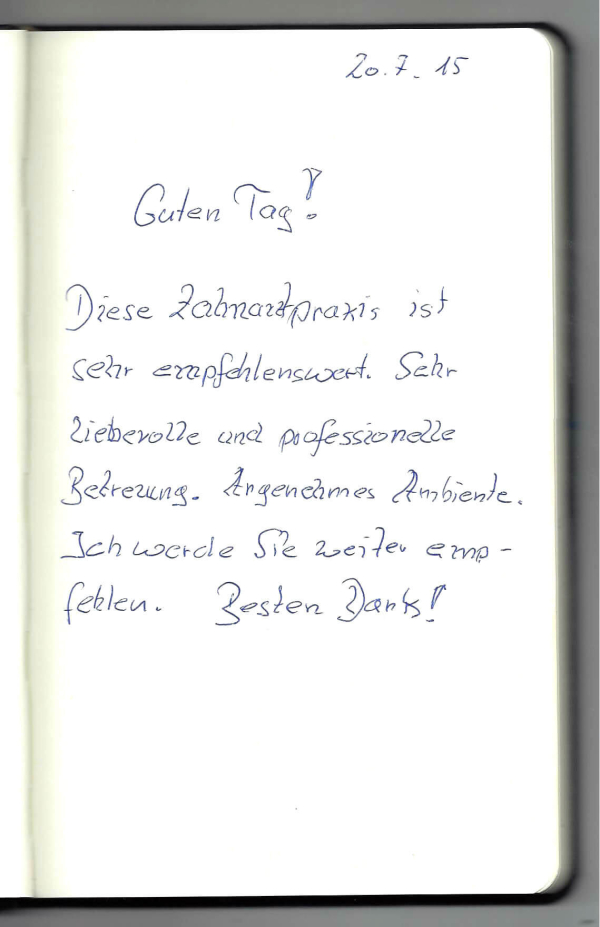 20.7.15
Guten Tag!
Diese Zahnarztpraxis ist
sehr empfehlenswert. Sehr
liebevolle und professionelle
Betreuung. Angenehmes Ambiente.
Ich werde Sie weiter emp-
fehlen. Besten Dank!